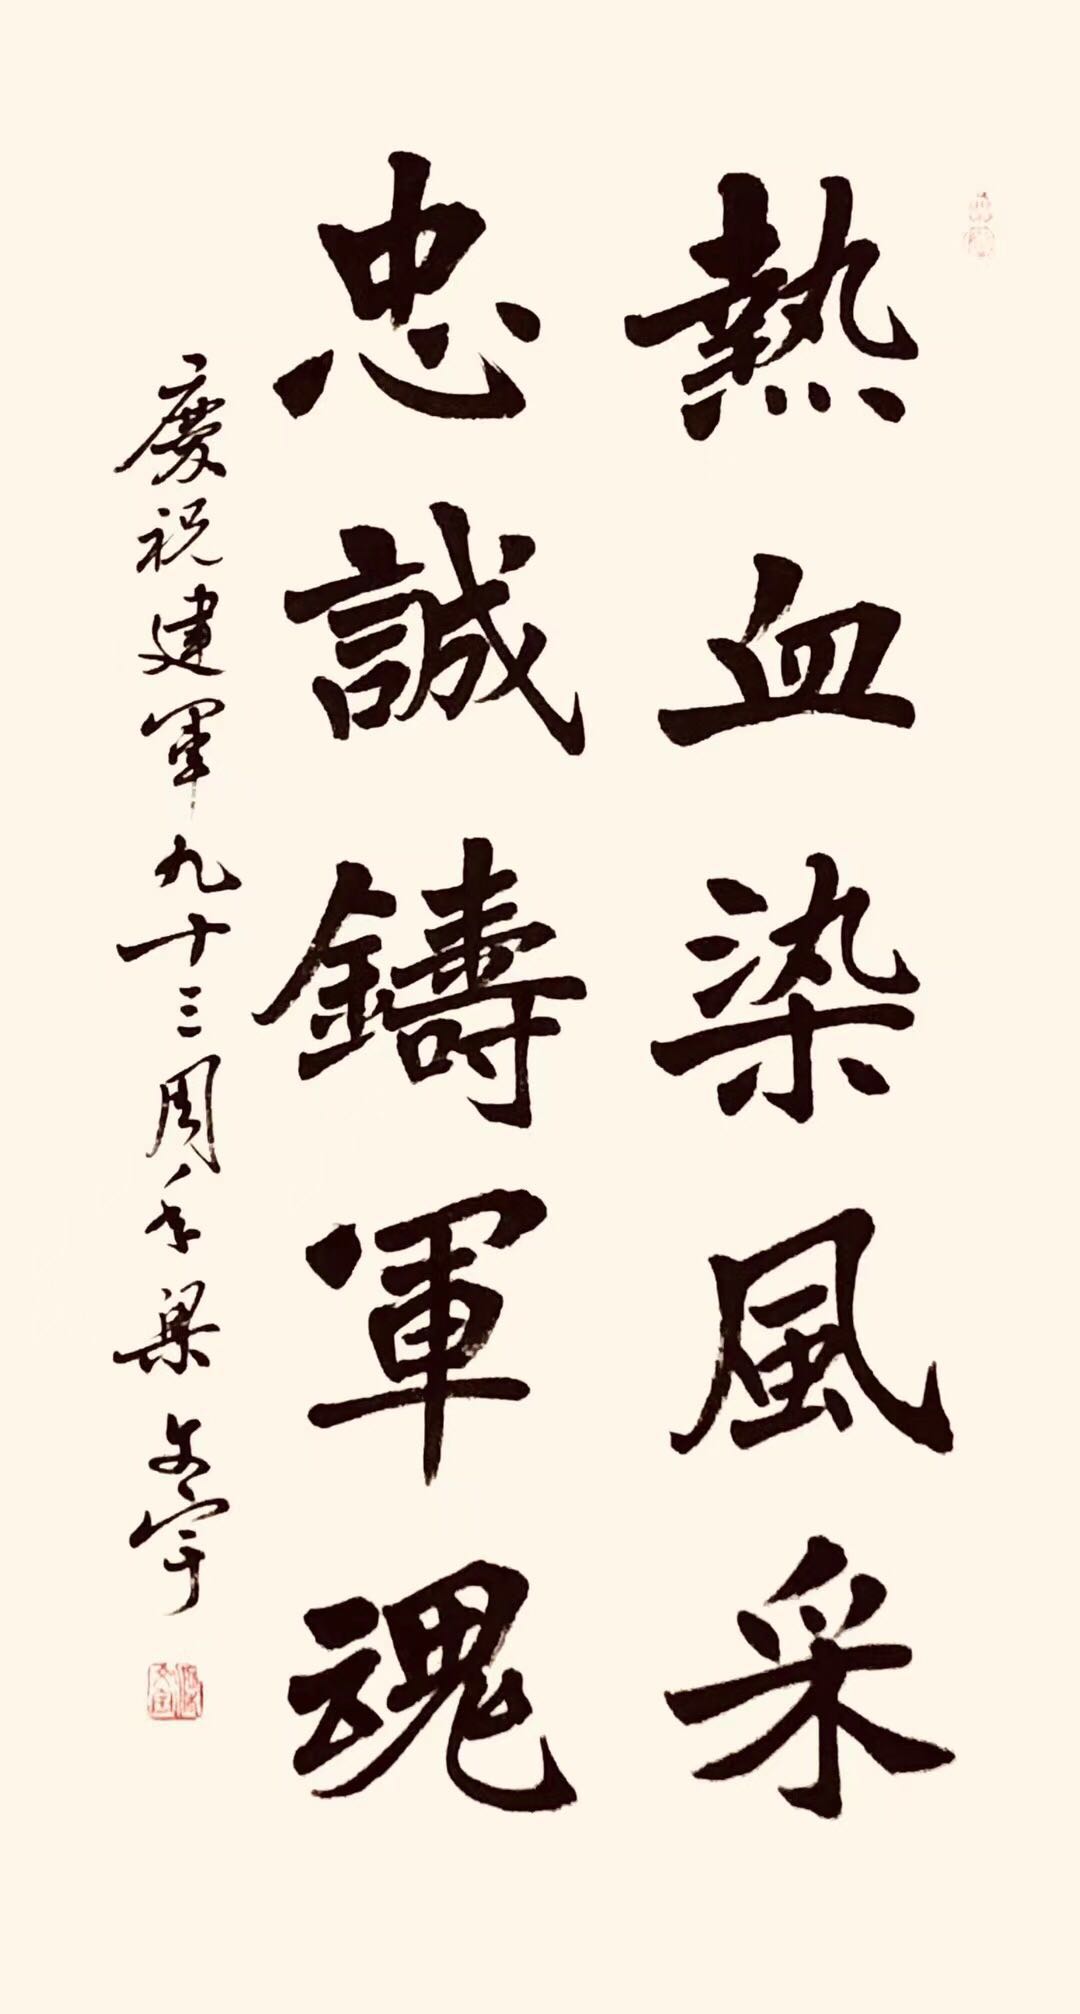 熱血染風采
忠誠鑄軍魂
慶祝建軍九十三周年梁文宇